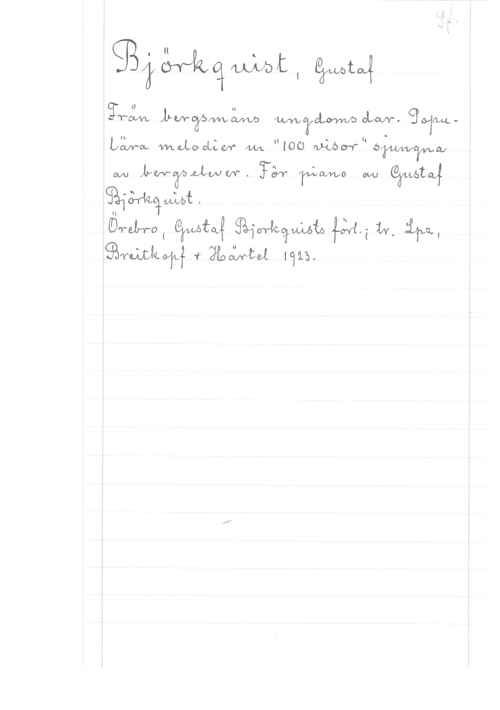 Pf.
Björkquist, Gustaf
Från bergsmäns ungdomsdar. Popu-
lära melodier ur "100 visor" sjungna
av bergselever. För piano av Gustaf
Björkquist.
Örebro, Gustaf Bjorkquists förl.; tr. Lpz,
Breitkopf & Härtel 1923.